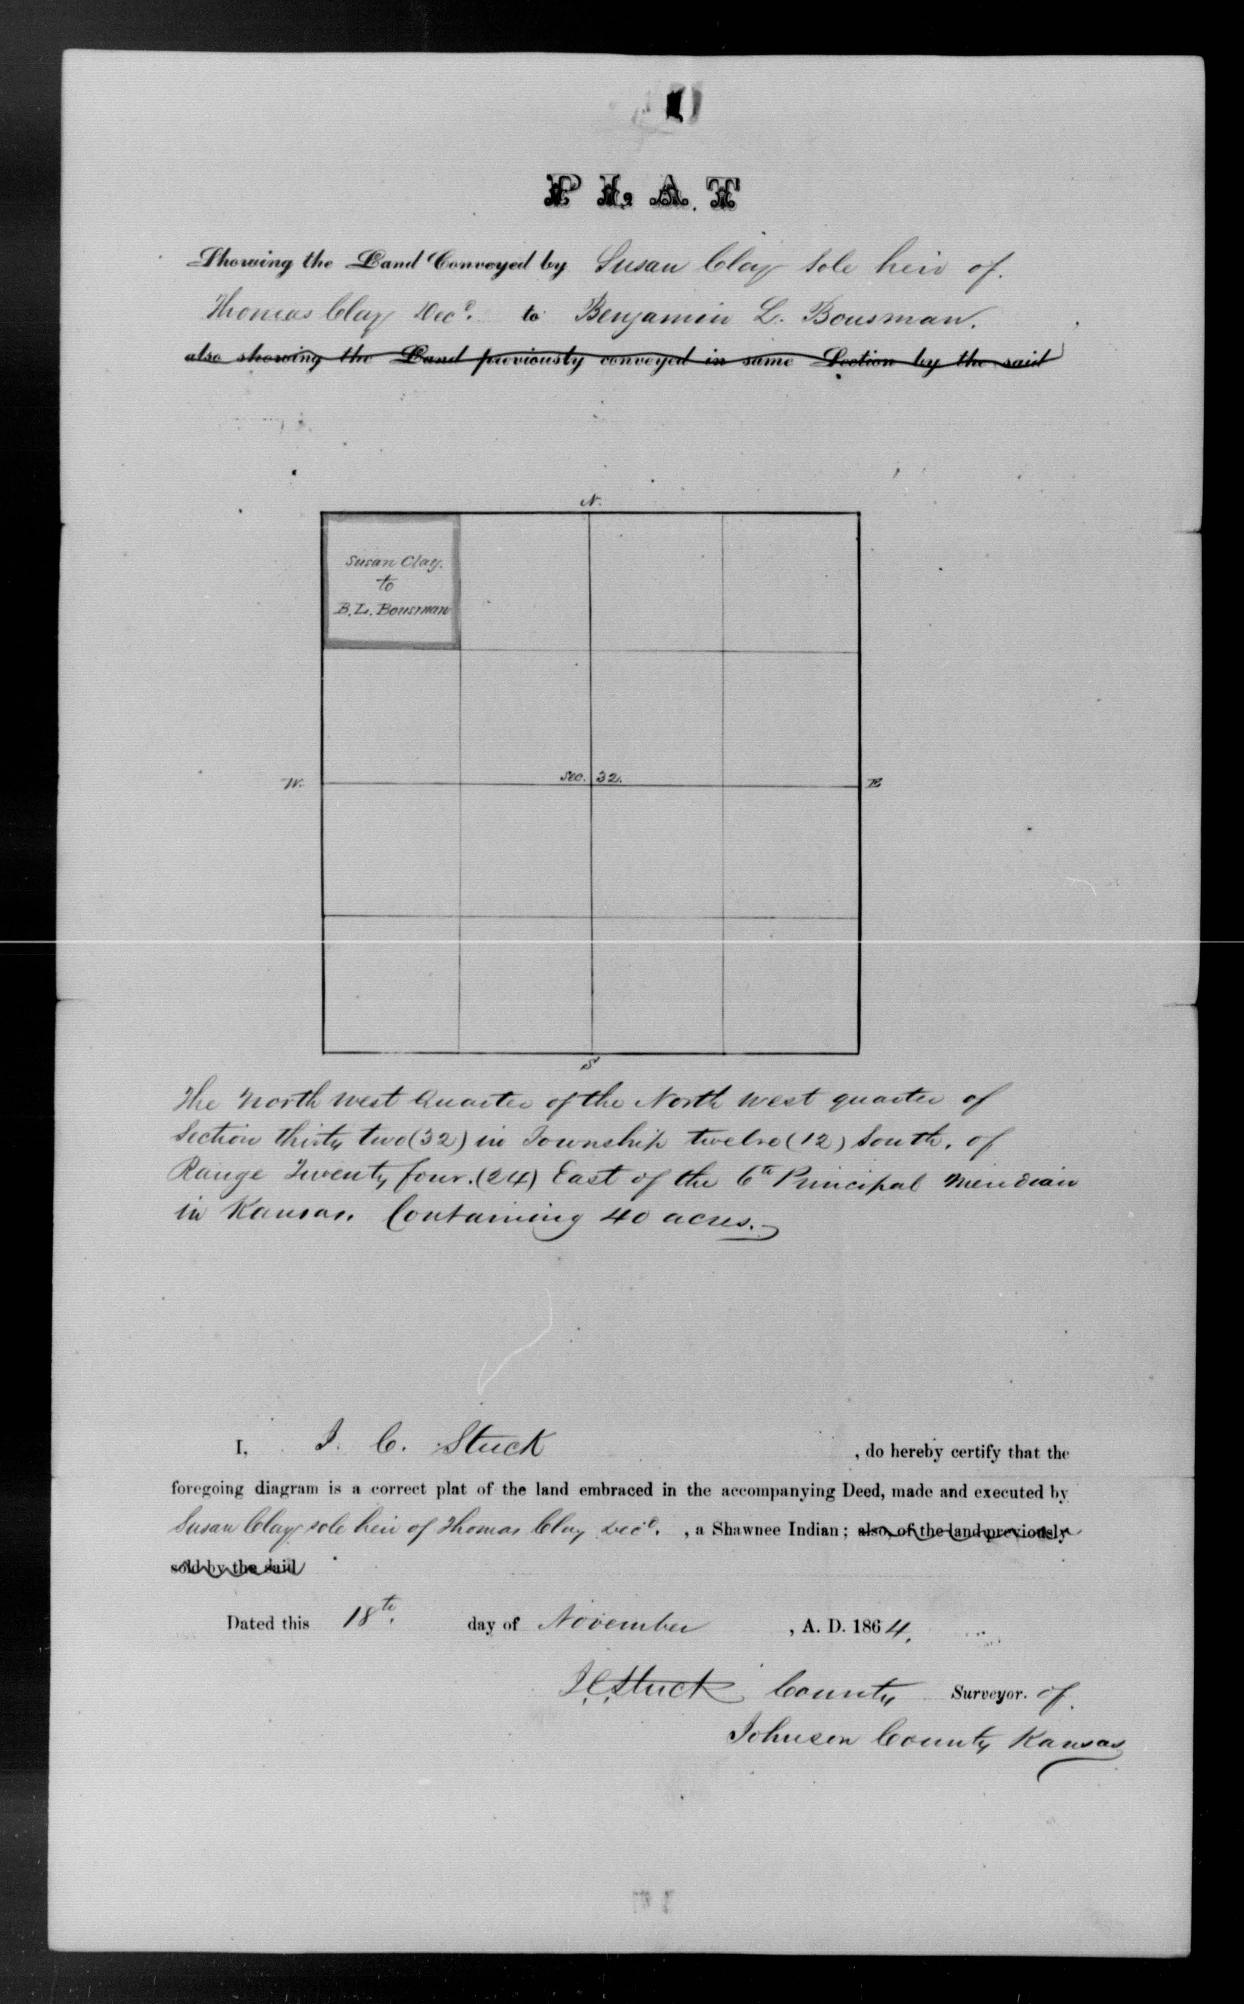 PLAT
Showing the Land Conveyed by Susan Clay sole heir of
Thomas Clay Decd. to Benjamin L. Bousman.
also showing the Land previously conveyed in same Section by the said
N.
Susan Clay.
to
B. L. Bousman
W.
Sec. 32.
E
S
The North west Quarter of the North west quarter of
Section thirty two (32) in Township twelve (12) South, of
Range Twenty four. (24) East of the 6th Principal Meridian
in Kansas. Containing 40 acres.
I, J. C. Stuck , do hereby certify that the
foregoing diagram is a correct plat of the land embraced in the accompanying Deed, made and executed by
Susan Clay sole heir of Thomas Clay Decd. , a Shawnee Indian; also, of the land previously
sold by the said
Dated this 18th. day of November , A. D. 1864.
J. C. Stuck County Surveyor. of
Johnson County Kansas